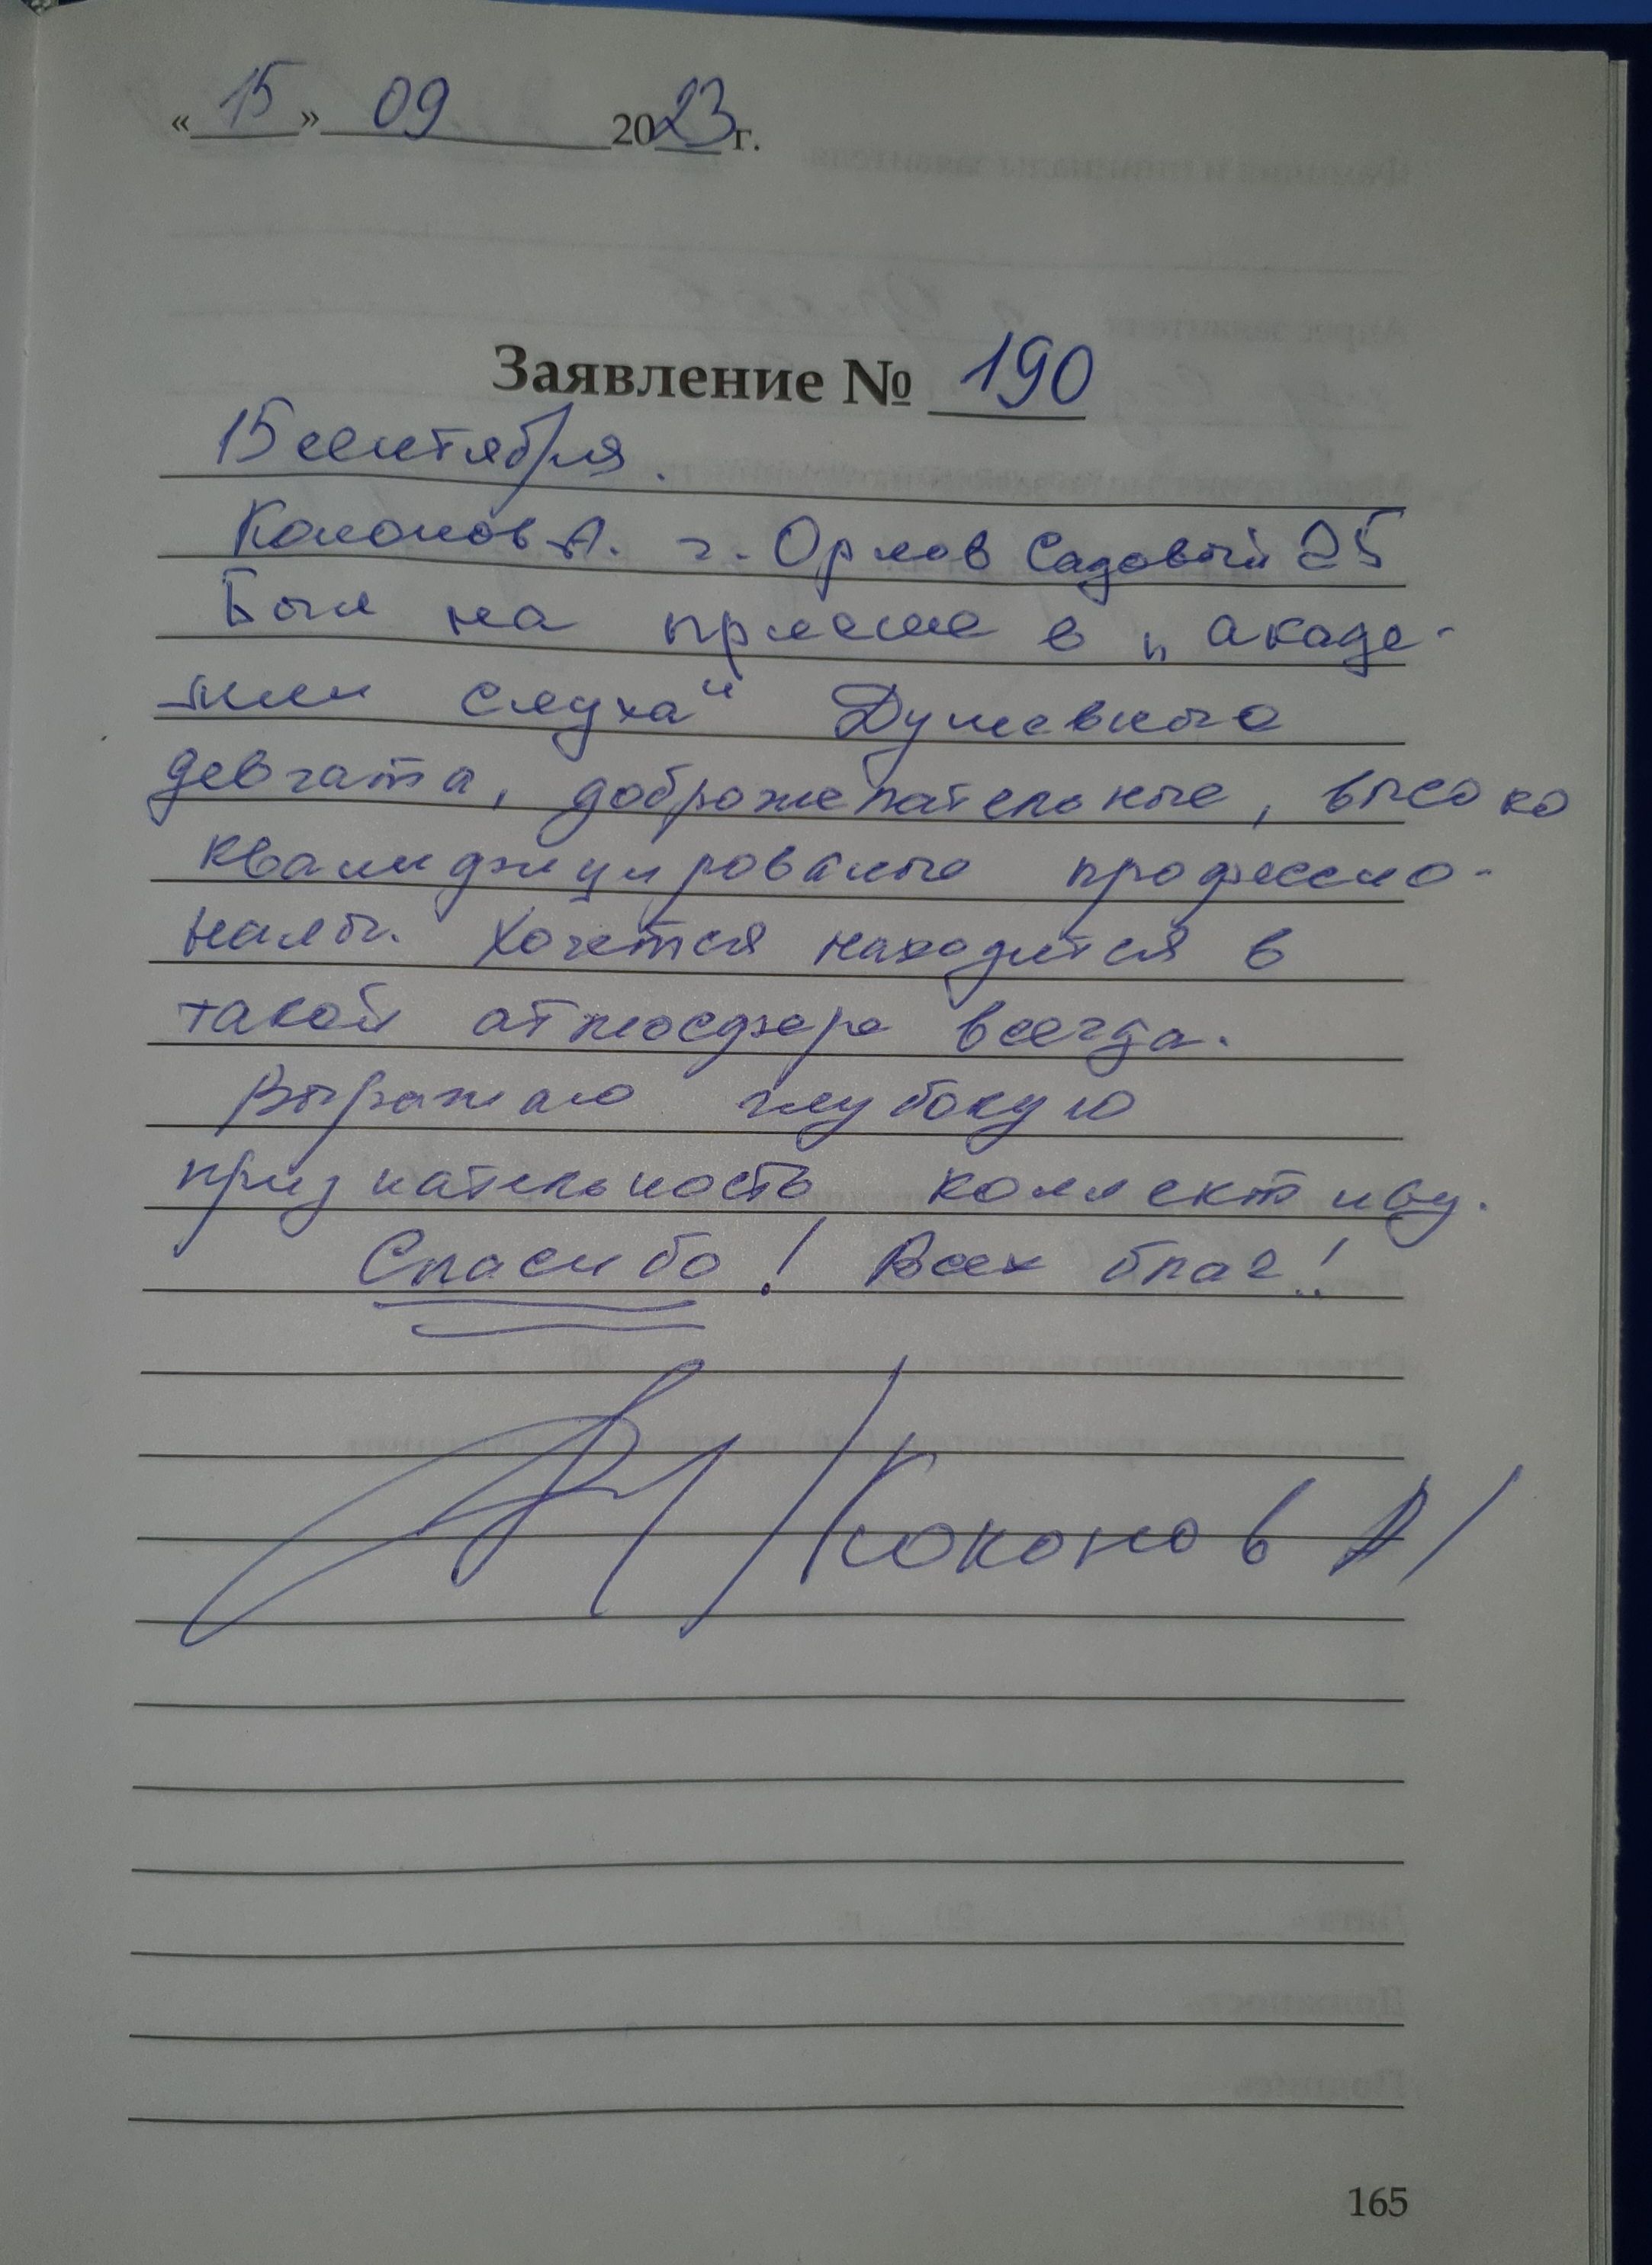 «15» 09 2023 г.
Заявление № 190
15 сентября.
Коконов А. г. Орлов Садовый 25
Был на приеме в „Акаде-
мии слуха" Душевные
девчата, доброжелательные, высоко
квалифицированые профессио-
налы. Хочется находится в
такой атмосфере всегда.
Выражаю глубокую
признательность коллективу.
Спасибо! Всех благ!
/Коконов А/
165